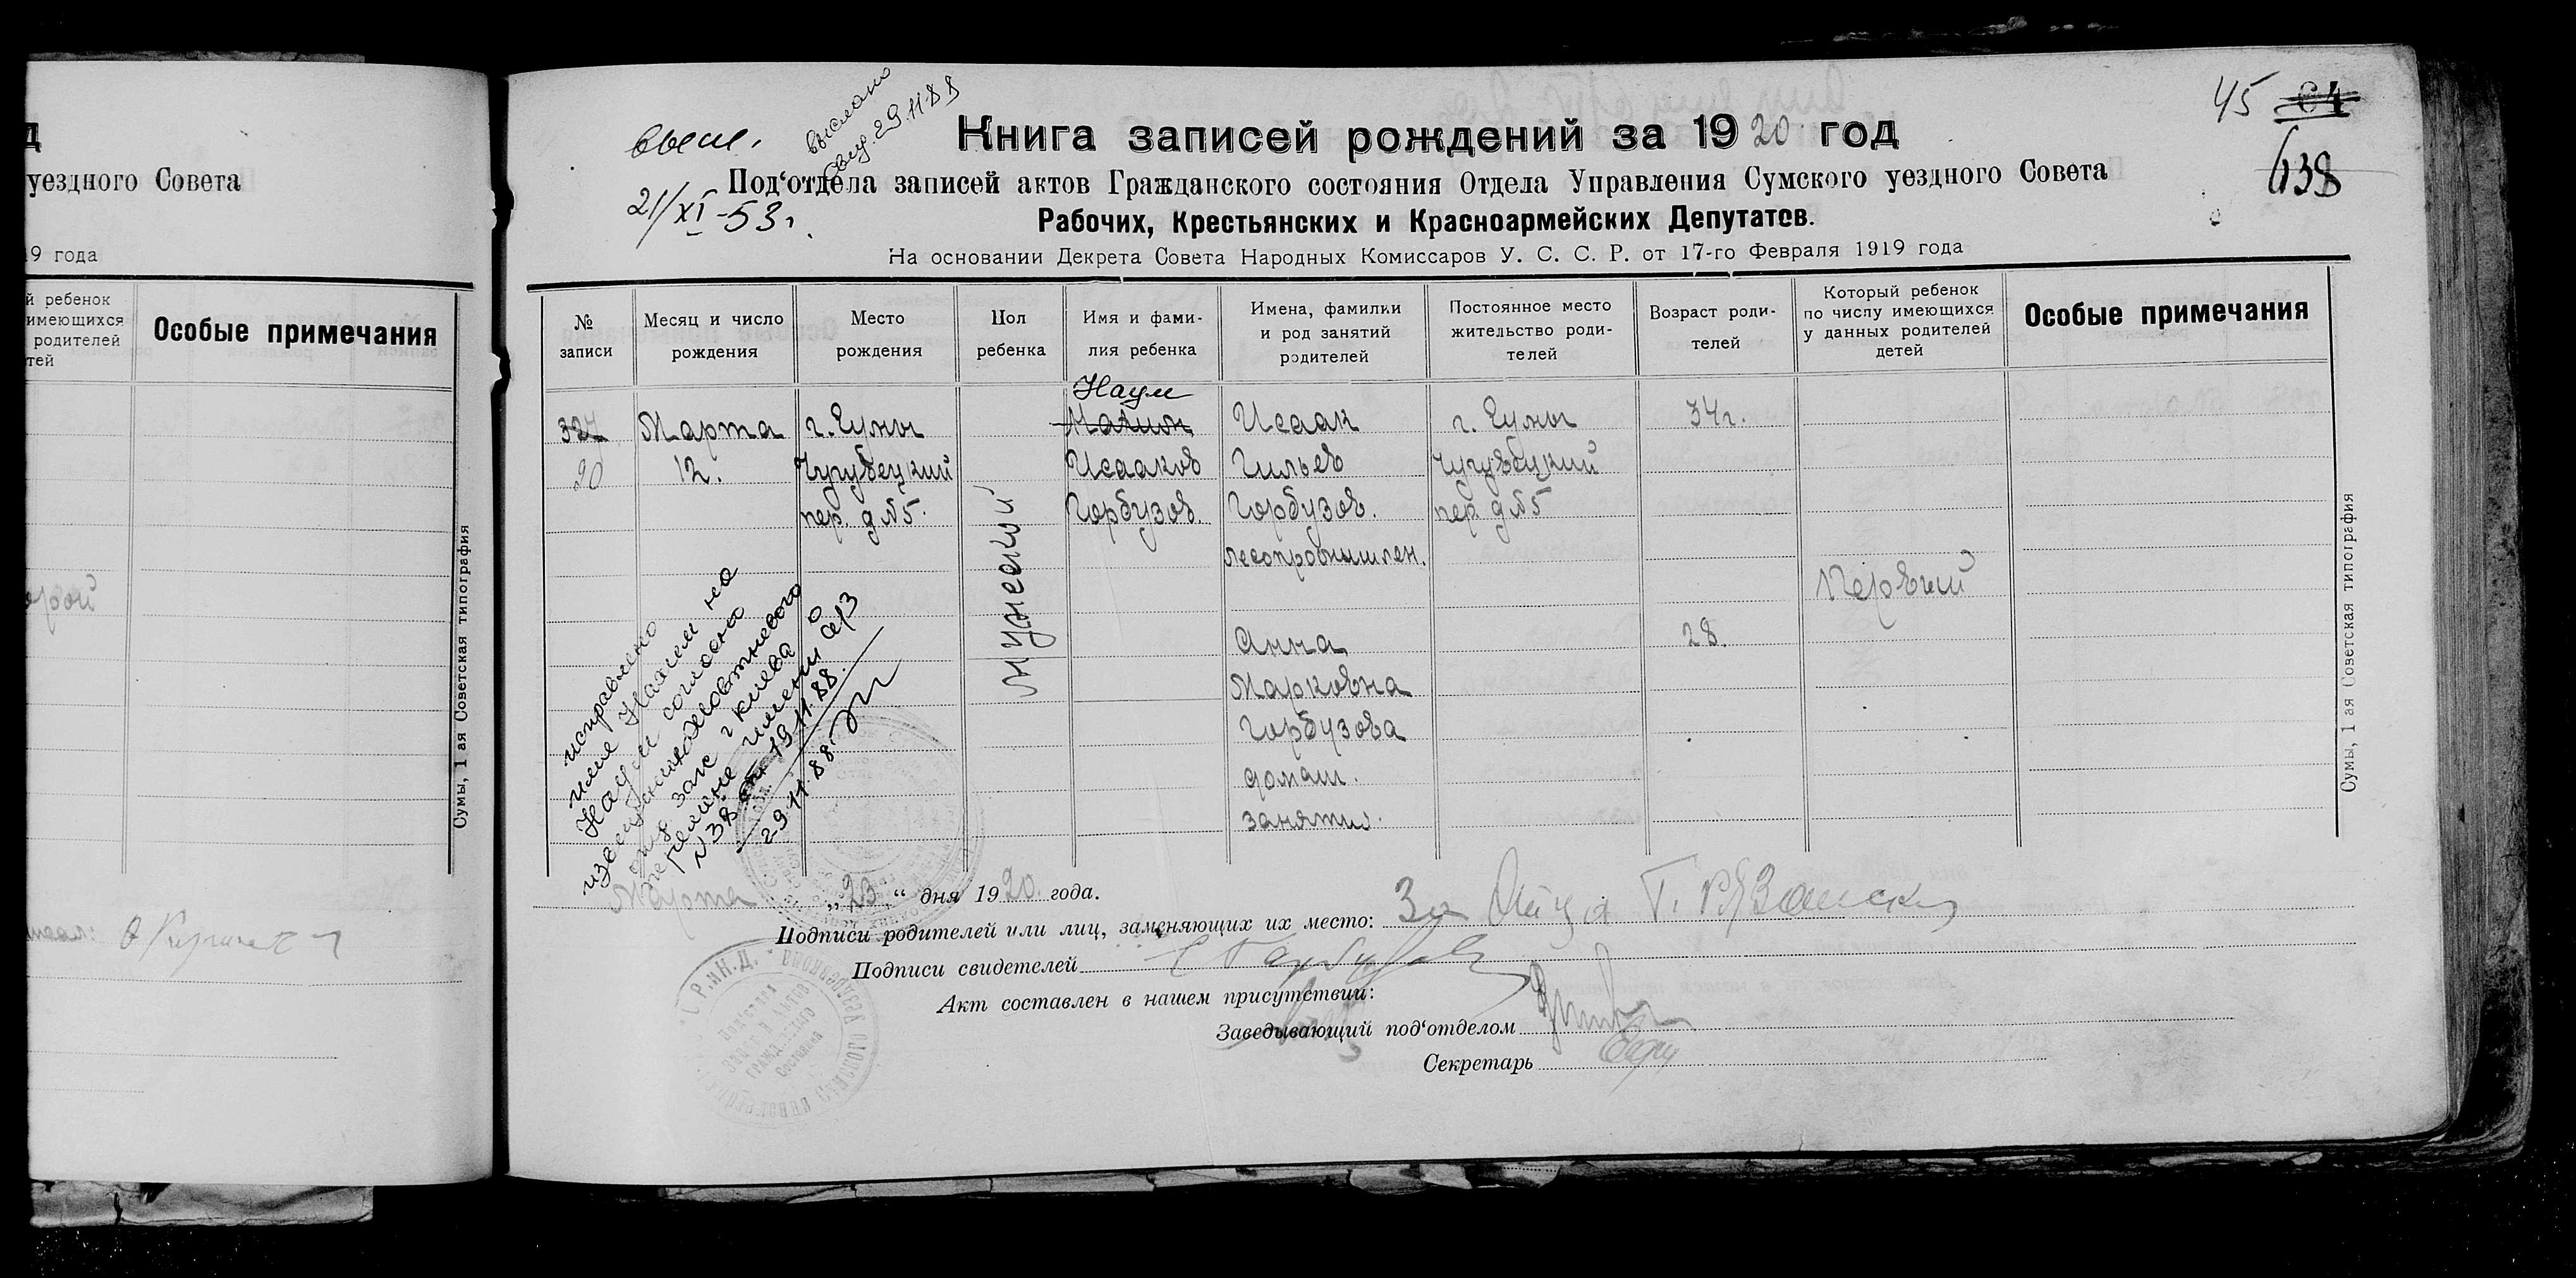 уездного Совета
19 года
й ребенок
имеющихся
родителей
тей
Особые примечания
Сумы, 1 ая Советская типография
45 64
638
выс.
21/XI-53г.
выслано
свид. 29.11.88
Книга записей рождений за 1920 год
Под‘отдела записей актов Гражданского состояния Отдела Управления Сумского уездного Совета
Рабочих, Крестьянских и Красноармейских Депутатов.
На основании Декрета Совета Народных Комиссаров У. С. С. Р. от 17-го Февраля 1919 года
№ записи
Месяц и число рождения
Место рождения
Пол ребенка
Имя и фами-лия ребенка
Имена, фамилии и род занятий родителей
Постоянное место жительство роди-телей
Возраст роди-телей
Который ребенок по числу имеющихся у данных родителей детей
Особые примечания
327
90
Марта
12.
г. Сумы
Чугуевский
пер. д №5.
Мужеской
Наум
Исааков
Горбузов.
Исаак
Гильев
Горбузов.
лесопромышлен.
Анна
Марковна
Горбузова
домаш.
занятия.
г. Сумы
Чугуевский
пер. д №5
34г.
28.
Первый
исправлено
имя на
Наум согласно
извещения
загс г Киева о
перемене имени
N 38 от 19.11.88.
29.11.88.
Марта „23“ дня 1920 года.
Подписи родителей или лиц, заменяющих их место: За Отца Г. Рязанский
Подписи свидетелей
Акт составлен в нашем присутствии:
Заведывающий под‘отделом
Секретарь
Сумы, 1 ая Советская типография